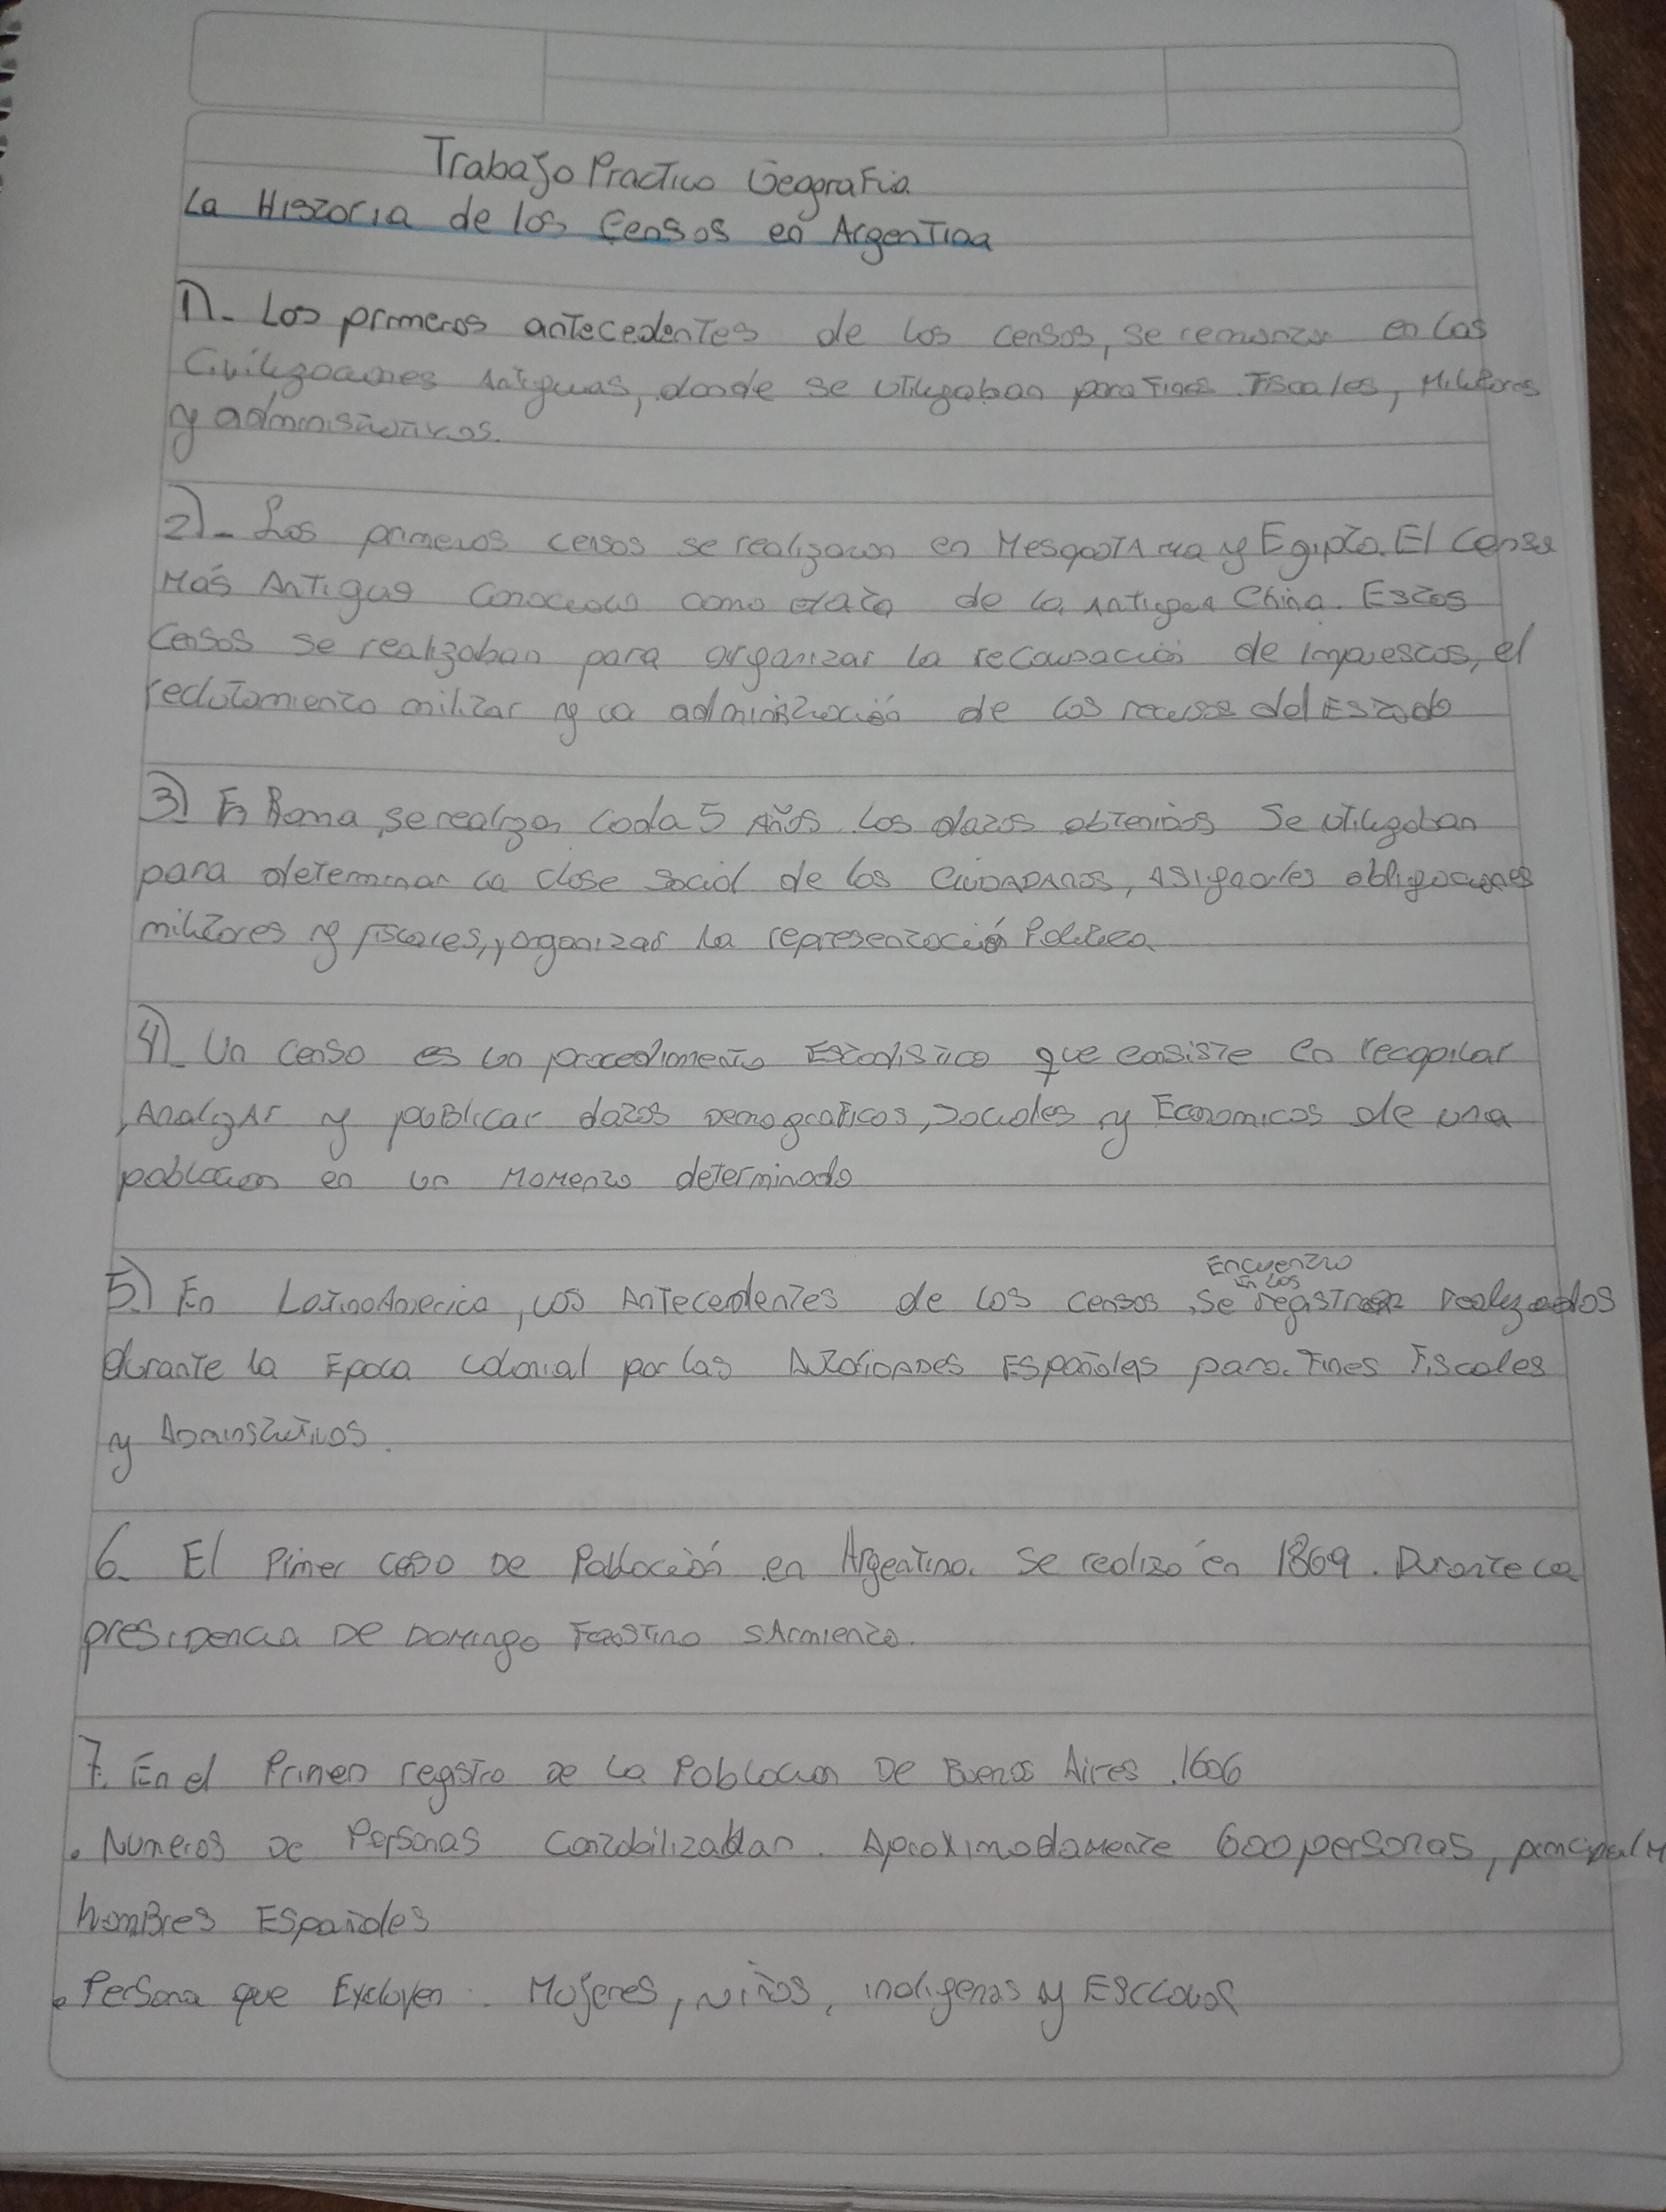 Trabajo Practico Geografia
La Historia de los Censos en Argentina
1)- Los primeros antecedentes de los censos, se remonta en las
Civilizaciones Antiguas, donde se utilizaban para Fines Fiscales, Militares
y administrativos.
2)- Los primeros censos se realizaron en MesopoTAmia y Egipto. El Censo
Más Antiguo Conocido como data de la Antigua China. Estos
Censos se realizaban para organizar la recaudación de impuestos, el
reclutamiento militar y la administración de los recursos del Estado
3) En Roma, se realizan cada 5 Años. Los datos obtenidos Se utilizaban
para determinar la clase Social de los CiuDADANos, Asignarles obligaciones
militares y fiscales, y organizar la representación Politica
4)- Un Censo es un procedimento Estadistico que consiste en recopilar
, AnalizAr y publicar datos Demograficos, Sociales y Economicos de una
poblacion en un Momento determinado
5) En LatinoAmerica, los Antecedentes de los censos, Se Encuentro en los registros realizados
durante la Epoca colonial por las AutoriDADes Españoles para Fines Fiscales
y Administrativos.
6- El Pimer censo De Población en Argentina. Se realizó en 1869. Durante la
presiDencia De Domingo Faustino SArmiento.
7. En el Primer registro De La Poblacion De Buenos Aires. 1606
• Numeros De Personas Contabilizaban. Aproximadamente 600 personas,
hombres Españoles
• Persona que Excluyen. Mujeres, Niños, indigenas y Esclavos